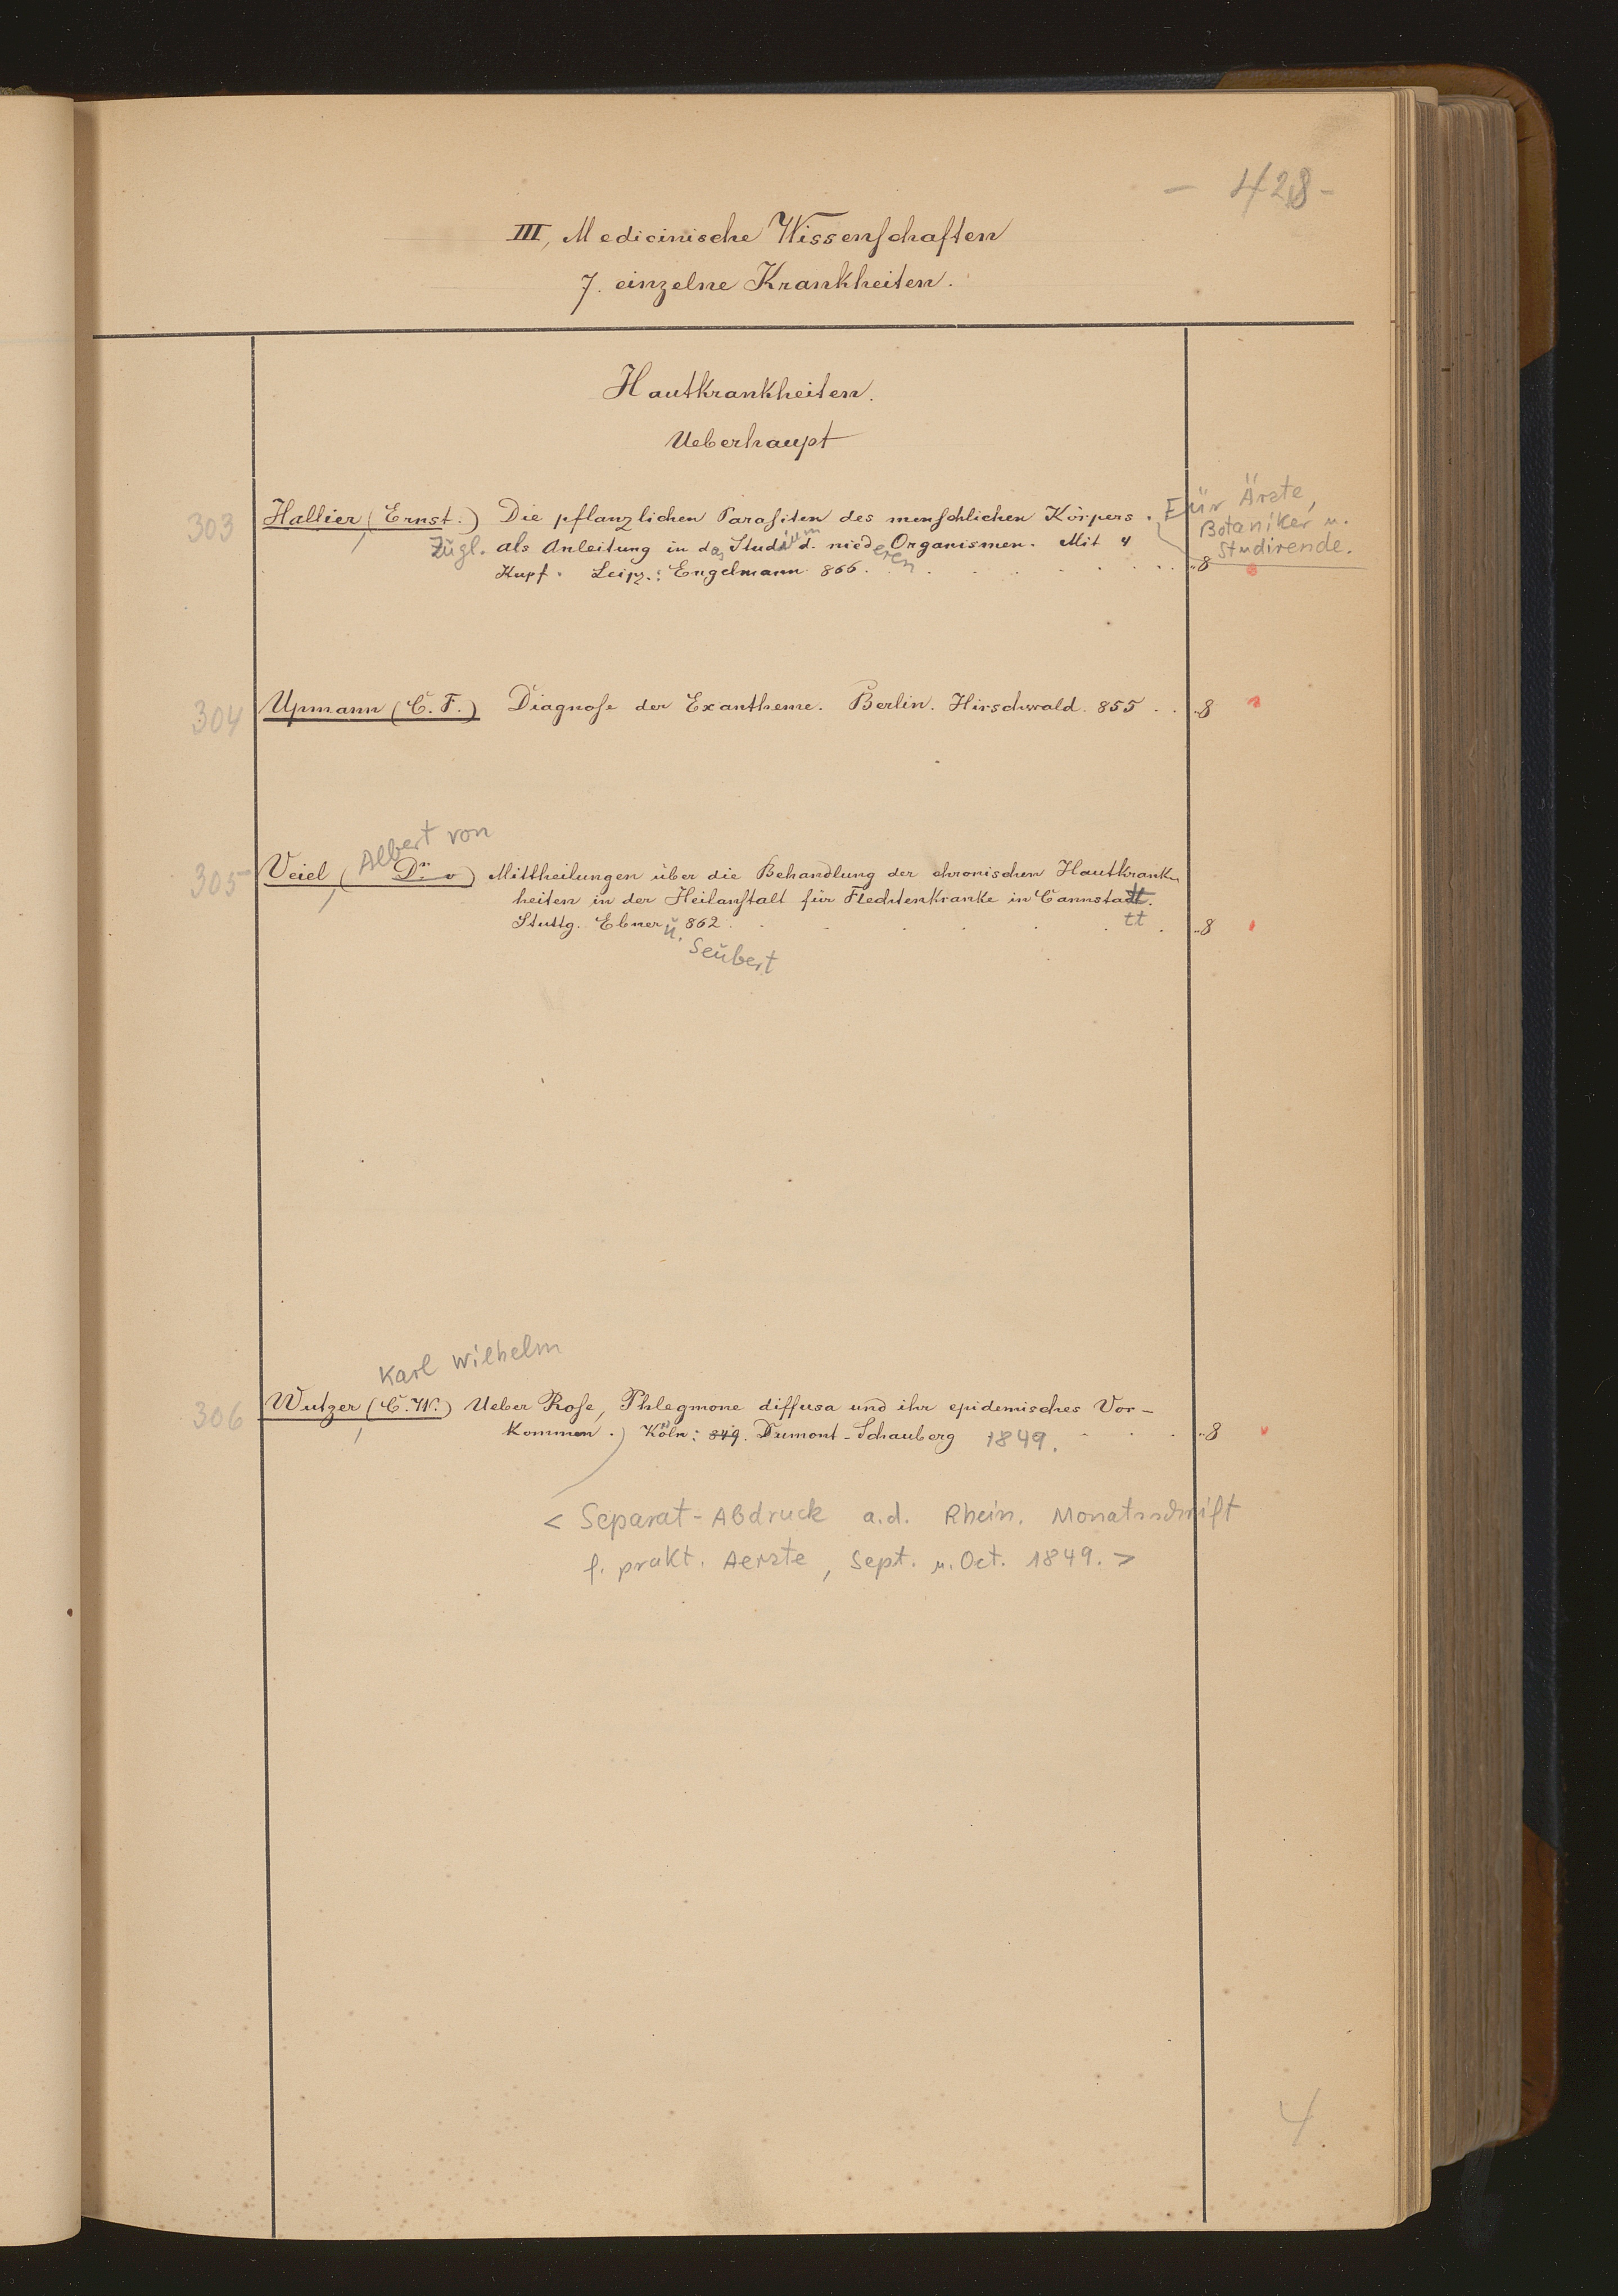 - 428 -
III, Medicinische Wissenschaften
7. einzelne Krankheiten.
Hautkrankheiten.
Ueberhaupt
303 Hallier, (Ernst.) Die pflanzlichen Parasiten des menschlichen Körpers. Für Ärzte,
Botaniker u.
Studirende.
Zugl. als Anleitung in das Studium d. niederen Organismen. Mit 4
Kupf. Leipz.: Engelmann 866. . . . . . . . "8
304 Upmann (C. F.) Diagnose der Exantheme. Berlin. Hirschwald. 855 . . "8
Albert von
305 Veiel, (Dr. v) Mittheilungen über die Behandlung der chronischen Hautkrank
heiten in der Heilanstalt für Flechtenkranke in Cannstadt.
tt
Stuttg. Ebner u. 862 . . . . . . . "8
Seubert
Karl Wilhelm
306 Wutzer, (C. W.) Ueber Rose, Phlegmone diffusa und ihr epidemisches Vor-
kommen.) Köln: 849. Dumont-Schauberg 1849. . . . "8
< Separat-Abdruck a.d. Rhein. Monatsschrift
f. prakt. Aerzte, Sept. u. Oct. 1849. >
4